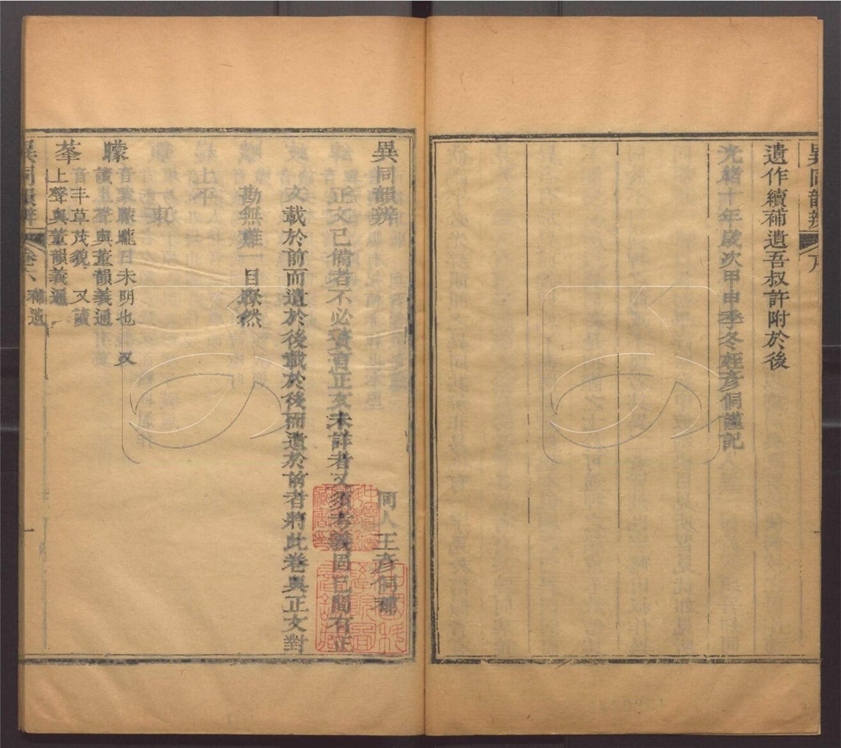 異同韻辨
遺作續補遺吾叔許附於後
光緒十年歲次甲申季冬姪彥侗謹記
異同韻辨
侗人王彥侗補
正文已備者不必贅有正文未詳者又須考義固已間有正
文載於前而遺於後載於後而遺於前者將此卷與正文對
勘無難一目瞭然
上平
一東
朦
音蒙朦朧日未明也 又
讀上聲與董韻義通
莑
音丰草茂貌 又讀
上聲與董韻義通
異同韻辨
卷六 補遺